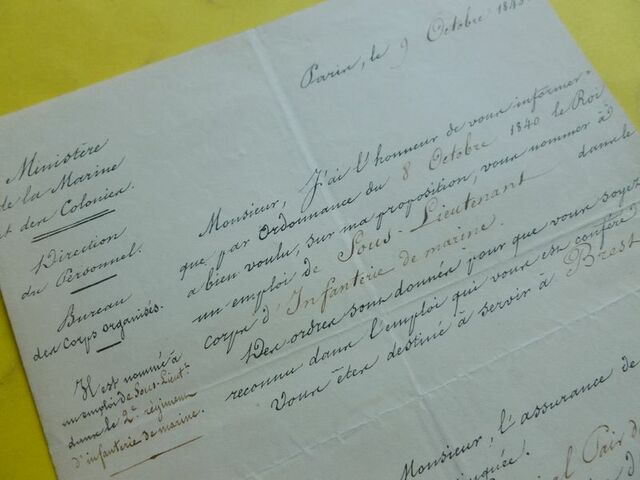 Paris, le 9 Octobre 1840.
Ministère
de la Marine
et des Colonies.
Direction
du Personnel.
Bureau
des Corps organisés.
Il est nommé à
un emploi de Sous-Lieutt
dans le 2e régiment
d'infanterie de marine.
Monsieur, J'ai l'honneur de vous informer
que, par Ordonnance du 8 Octobre 1840 le Roi
a bien voulu, sur ma proposition, vous nommer à
un emploi de Sous-Lieutenant dans le
corps d'Infanterie de marine.
Des ordres sont donnés pour que vous soyez
reconnu dans l'emploi qui vous est conféré.
Vous êtes destiné à servir à Brest
Monsieur, l'assurance de
Pair de